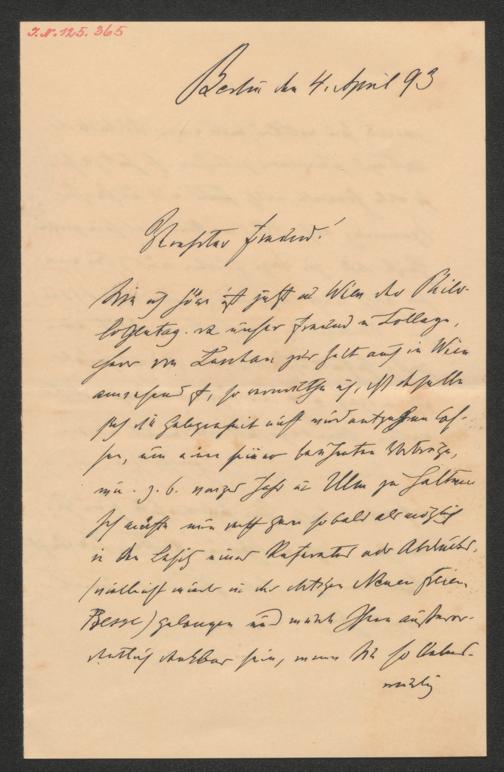 J.N. 125.365
Berlin den 4. April 93
Verehrter Freund!
Wie ich höre ist jetzt in Wien der Philo-
logentag. Da unser Freund u College,
Herr von Luschan zur Zeit auch in Wien
anwesend ist, so vermuthe ich, daß derselbe
sich die Gelegenheit nicht wird entgehen las-
sen, um einen seiner berühmten Vorträge,
wie z. b. voriges Jahr in Ulm zu halten
Ich möchte nun recht gern sobald als möglich
in den Besitz eines Referates oder Abdruckes,
(vielleicht wieder in der dortigen Neuen freien
Presse) gelangen und würde Ihnen außeror-
dentlich dankbar sein, wenn Sie so liebens-
würdig